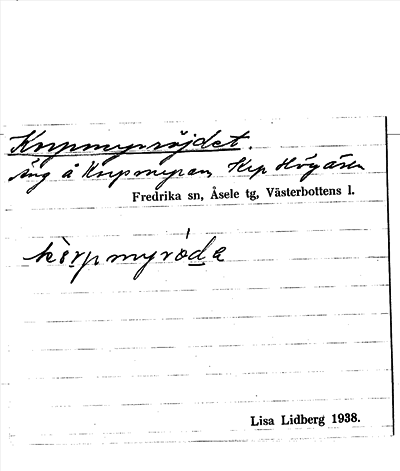 Korpmyrröjdet.
Äng å Korpmyran, Högåsen
Fredrika sn, Åsele tg, Västerbottens l.
kòrpmyröda
Lisa Lidberg 1938.